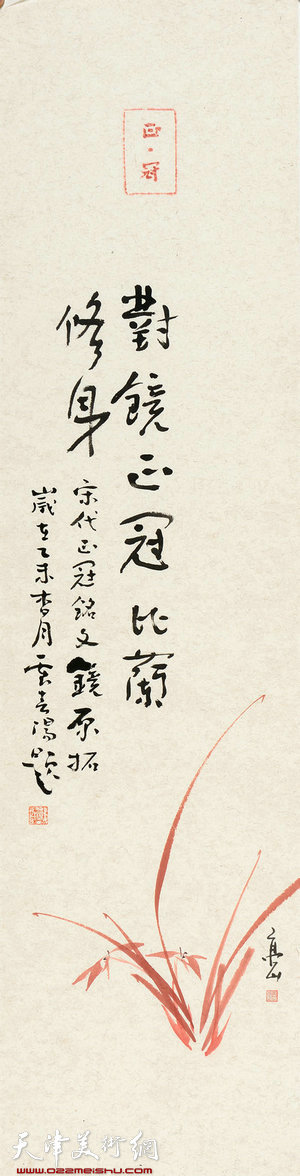 正·冠
對鏡正冠比蘭
修身
宋代正冠銘文鏡原拓
歲在乙未杏月雲喜陽題
天津美術網
www.022meishu.com